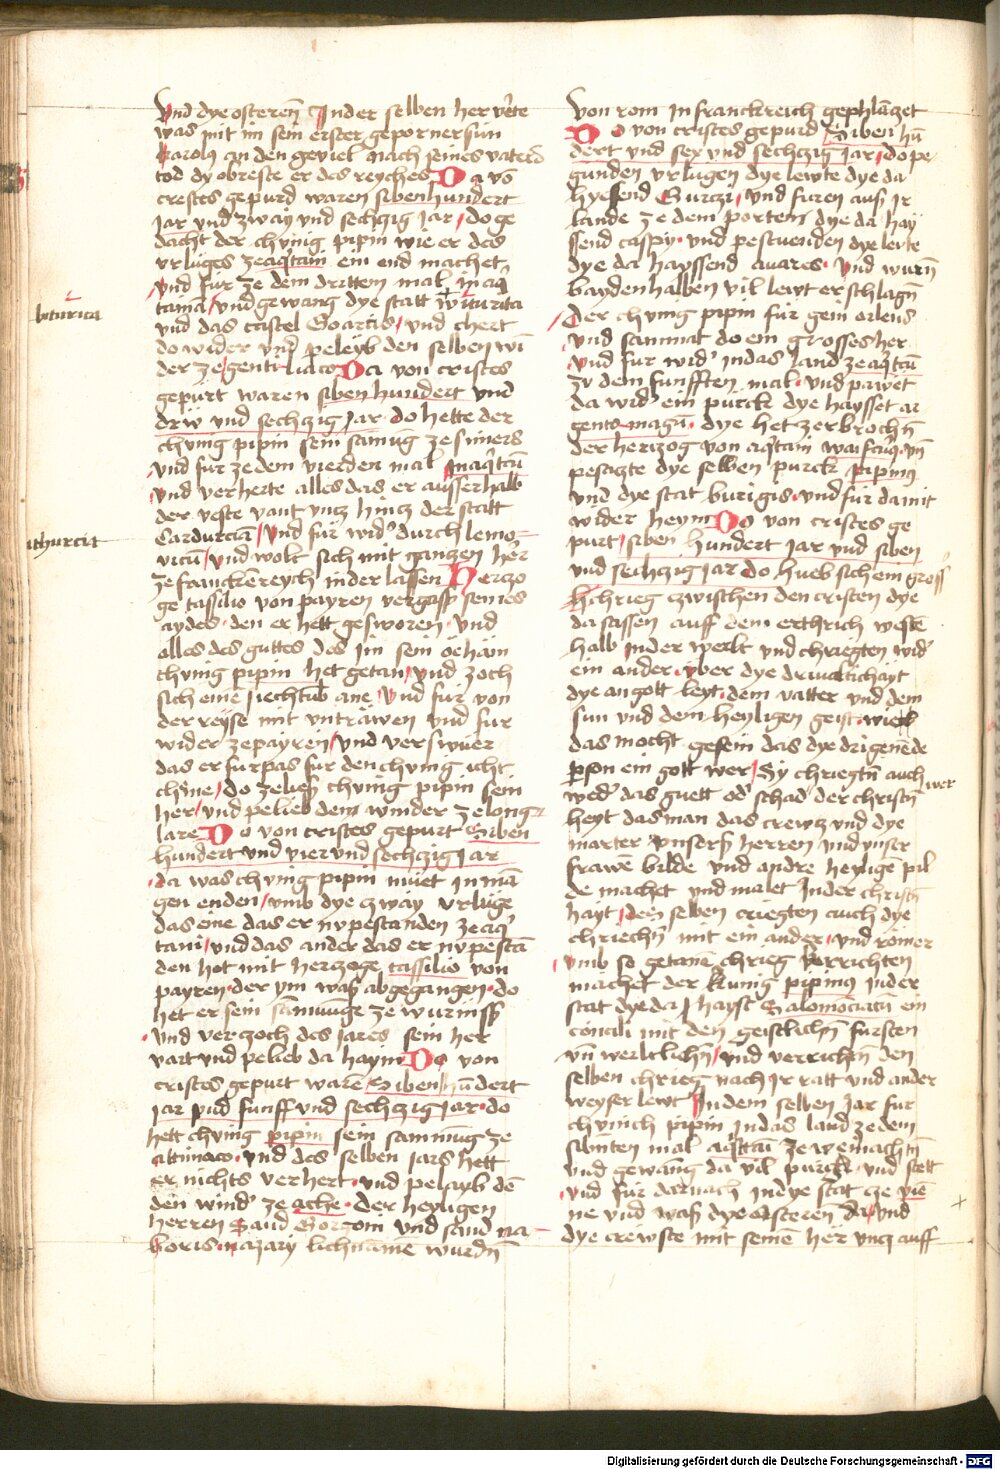 Und dye osteren Inder selben her verte
was mit im sein erster geporner sun
karoln an den geviel nach seines vaters
tod dy obreste er des reyches Da vo
cristes gepurd waren siben hundert
jar und zway und sechzig jar / do ge
dacht der chunig pipin wie er des
urluges ze aqtain ein end machet
und fur ze dem dritten mal in aq
taniā / und gewang dye statt witurita
biturica
und das castel Goartis / und chert
do wider und peleyb den selben wi
der ze gentiliaco Da von cristes
gepurt waren siben hundert und
drw und sechzig jar do hette der
chunig pipin sein samūg ze niuers
und fur ze dem vierden mal in aqtaū
und verherte alles das er ausserhalb
der veste vant uncz hincz der statt
Cardurciā / und fur wid durch lemo
vicū / und wolt sich mit ganczen her
ze franckreych inder lassen Herczo
ge tassilio von payren vergass seines
aydes den er hett gesworen und
alles des guttes des im sein öehäin
chunig pipin het getan / und zoch
sich eine siechtub ane / und fur von
der reyse mit untrawen und fur
wider ze payren / und verswuer
das er furpas fur den chunig icht
chome / do zeließ chunig pipin sein
her / und pelieb dem winder ze long
lare Do von cristes gepurt Siben
hundert und vier und sechzig jar
da was chunig pipin muet in mā
gen enden / umb dye czway urluge
das eine das er nu pestanden ze aq
tani / und das ander das er nu pestā
den hot mit herczoge tassilio von
payren der ym was abgegangen do
het er sein samunge ze wurmss
und verczoch des jares sein her
vart und pelieb da haym Do von
cristes gepurt waren Siben hundert
jar und funff und sechzig jar do
hett chunig pipin sein samnug ze
attiniaco und des selben jars hett
er nichts verhert und peleyb dē
den wind ze ache der heyligen
herren Sand Gorgoni und sand na
boris nazary lichnamē wurdn
von rom In franckreich gephlanczet
Do von cristes gepurd Siben hū
dert und sex und sechczig jar / do pe
gunden urlugen dye lewte dye da
hyessend Gurczi / und furen auß jr
lande ze dem porten dye da hay
ssend caspy und pestuenden dye lewte
dye da hayssend auares und wurn
baydenhalben vil lewt erschlagn
Der chunig pipin fur gein orlens
und sammat do ein grosses her
und fur wid indas land ze aqtaū
zu dem funfften mal und pawet
da wid ein purck dye haysset ar
gento magū dye het zerbrochn
der herczog von aqtani waifarq un
pesaczte dye selben purck pipinus
und dye stat burigis und fur damit
wider heym Do von cristes ge
purt / siben hundert jar und siben
und sechczig jar do hueb sich ein gross
chrieg czwischen den cristen dye
da sassen auff dem erthrich westē
halb inder werlt und chriegten wid
ein ander uber dye drivaltichayt
dye an gott leyt dem vatter und dem
sun und dem heyligen geist wie
das mocht gesein das dye drigenēde
person ein gott wer / Sy chriegtn auch
wed das guett od schad der christn wer
heyt das man das crewcz und dye
marter unsers herren und unser
frawē bilde und andre heylige pil
de machet und malet Inder christn
hayt / den selben criegten auch dye
chriechn mit ein ander / und römer
umb so getane chrieg verrichten
machet der kunig pipinus inder
stat dye da hayst Salomōciacū ein
concili mit den geistlichn fursten
un werltlichn / und verrichtn den
selben chrieg nach jr ratt und ander
weyser lewt Indem selben jar fur
chunich pipin indas land ze dem
sibinten mal aqtaī ze weinachtn
und gewang da vil purck und stett
und fur darnach indye stat cze viē
ne und was dye osteren da und
dye crewste mit seinē her uncz auff